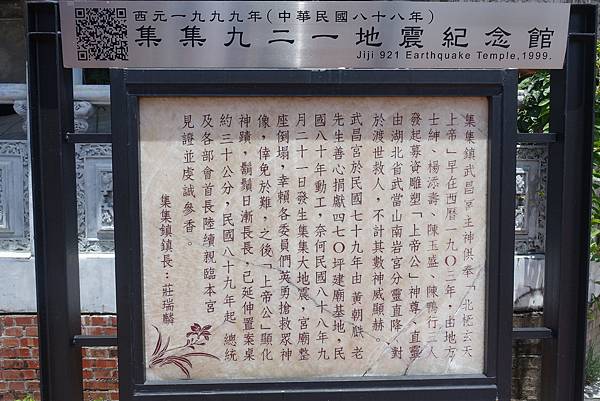 西元一九九九年(中華民國八十八年)
集集九二一地震紀念館
Jiji 921 Earthquake Temple,1999.
集集鎮武昌宮主神供奉「北極玄天
上帝」早在西曆一九０三年,由地方
士紳、楊添壽、陳玉盛、陳鴨行三人
發起募資雕塑「上帝公」神尊、直靈
由湖北省武當山南岩宮分靈直降,對
於渡世救人,不計其數神威顯赫。
武昌宮於民國七十九年由 黃朝 老
先生善心捐獻四七０坪建廟基地,民
國八十年動工,奈何民國八十八年九
月二十一日發生集集大地震,宮廟整
座倒塌,幸賴各委員們英勇搶救眾神
像,倖免於難,之後「上帝公」顯化
神蹟,鬍鬚日漸長長,已延伸置案桌
約三十公分,民國八十九年起 總統
及各部會首長陸續親臨本宮
見證並虔誠參香。
集集鎮鎮長:莊瑞麟